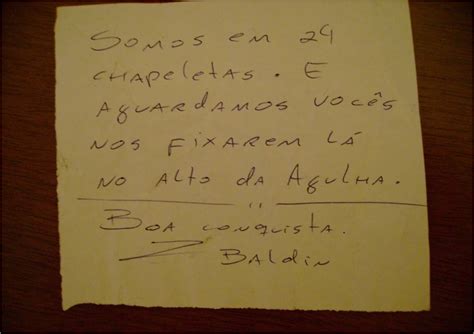 Somos em 24
chapeletas. E
aguardamos vocês
nos fixarem lá
no alto da Agulha.
Boa conquista.
Baldin